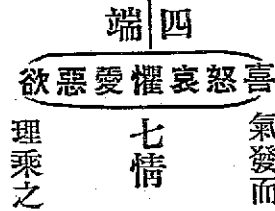 四端
喜怒哀懼愛惡欲
氣發而
七情
理乘之